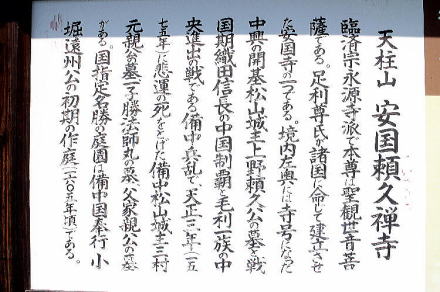 天柱山 安国頼久禅寺
臨済宗永源寺派で本尊は聖観世音菩
薩である。足利尊氏が諸国に命して建立させ
た安国寺の一つである。境内左奥には寺号になった
中興の開基松山城主上野頼久公の墓と戦
国期織田信長の中国制覇と毛利一族の中
央進出の戦である備中兵乱で、天正三年(一五
七五年)に悲運の死をとげた備中松山城主三村
元親公の墓一子勝法師丸の墓、父家親公の墓
がある。国指定名勝の庭園は備中国奉行 小
堀遠州公の初期の作庭(一六〇五年頃)である。